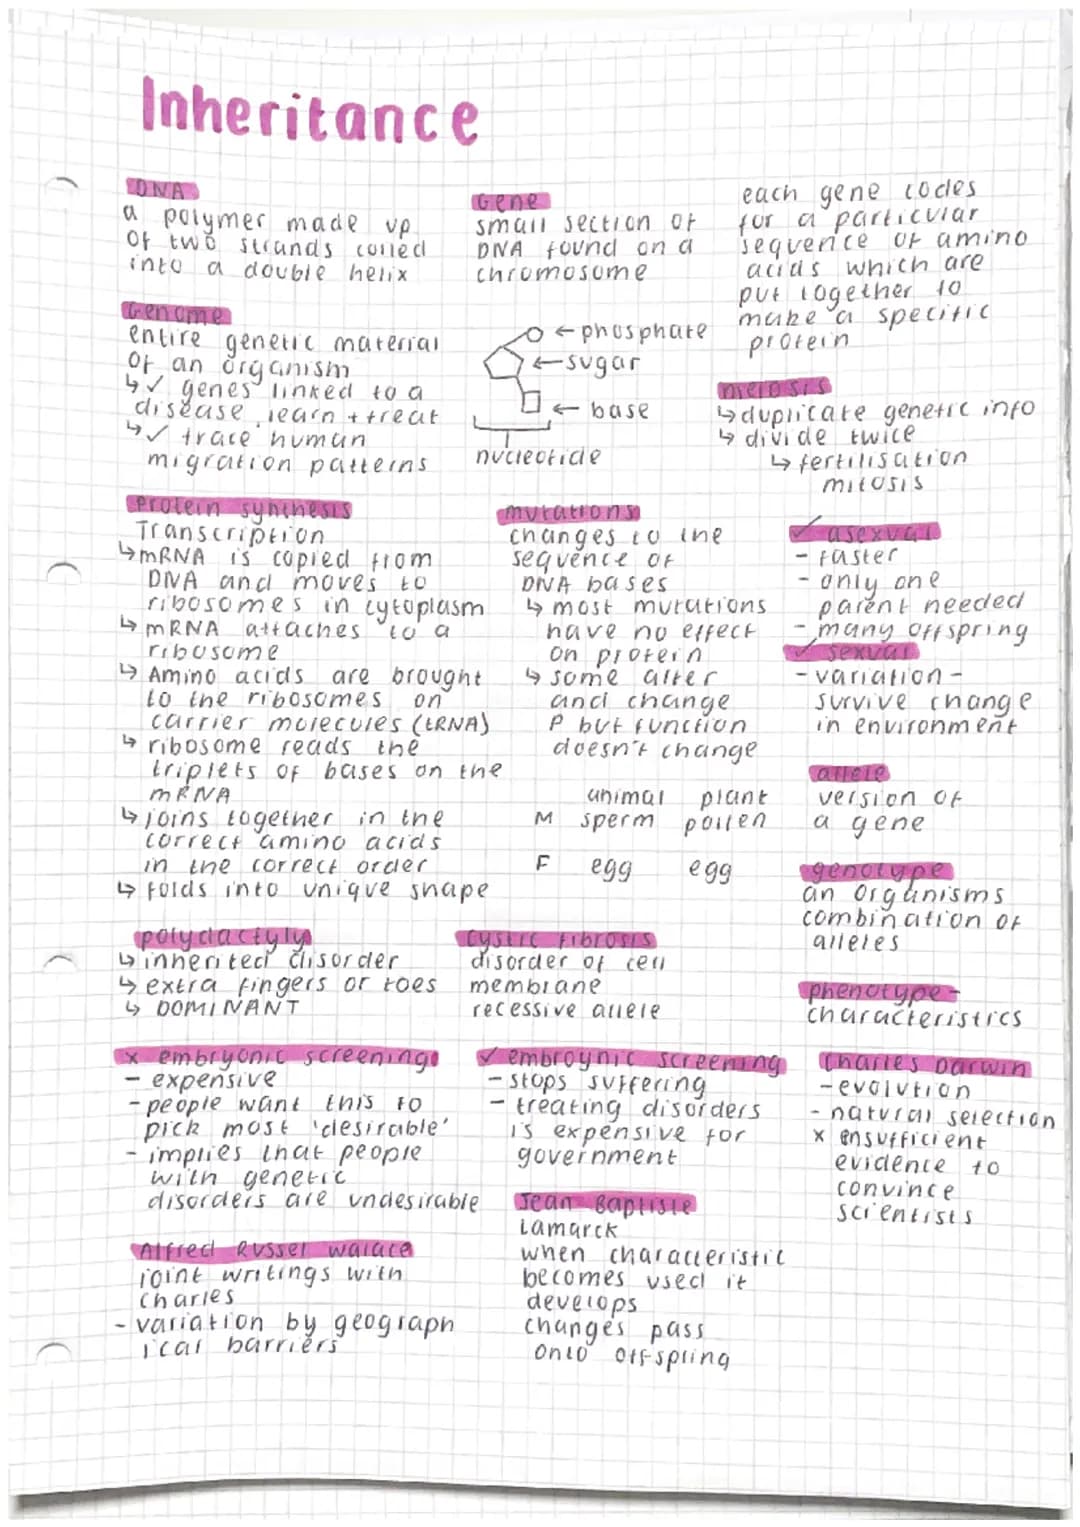 Inheritance
DNA
a polymer made up
of two strands coiled
into a double helix
Genome
entire genetic material
of an organism
↳✓ genes linked to a
disease, learn + treat
↳✓ trace human
migration patterns
Gene
small section of
DNA found on a
chromosome
←phosphate
←sugar
← base
nucleotide
each gene codes
for a particular
sequence of amino
acids which are
put together to
make a specific
protein
meiosis
↳duplicate genetic info
↳ divide twice
↳ fertilisation
mitosis
Protein synthesis
Transcription
↳mRNA is copied from
DNA and moves to
ribosomes in cytoplasm
↳ mRNA attaches to a
ribosome
↳ Amino acids are brought
to the ribosomes on
carrier molecules (tRNA)
↳ ribosome reads the
triplets of bases on the
mRNA
↳ joins together in the
correct amino acids
in the correct order
↳ folds into unique shape
mutations
changes to the
sequence of
DNA bases
↳ most mutations
have no effect
on protein
↳ some alter
and change
P but function
doesn't change
animal plant
M sperm pollen
F egg egg
✓ asexual
- faster
- only one
parent needed
- many offspring
✓ sexual
- variation -
survive change
in environment
allele
version of
a gene
genotype
an organisms
combination of
alleles
phenotype-
characteristics
polydactyly
↳ inherited disorder
↳ extra fingers or toes
↳ DOMINANT
cystic fibrosis
disorder of cell
membrane
recessive allele
x embryonic screening
- expensive
- people want this to
pick most 'desirable'
- implies that people
with genetic
disorders are undesirable
✓ embroynic screening
- stops suffering
- treating disorders
is expensive for
government
Charles Darwin
- evolution
- natural selection
x ensufficient
evidence to
convince
scientists
Alfred Russel walace
joint writings with
Charles
- variation by geograph
ical barriers
Jean Baptiste
Lamarck
when characteristic
becomes used it
develops
changes pass
onto offspring